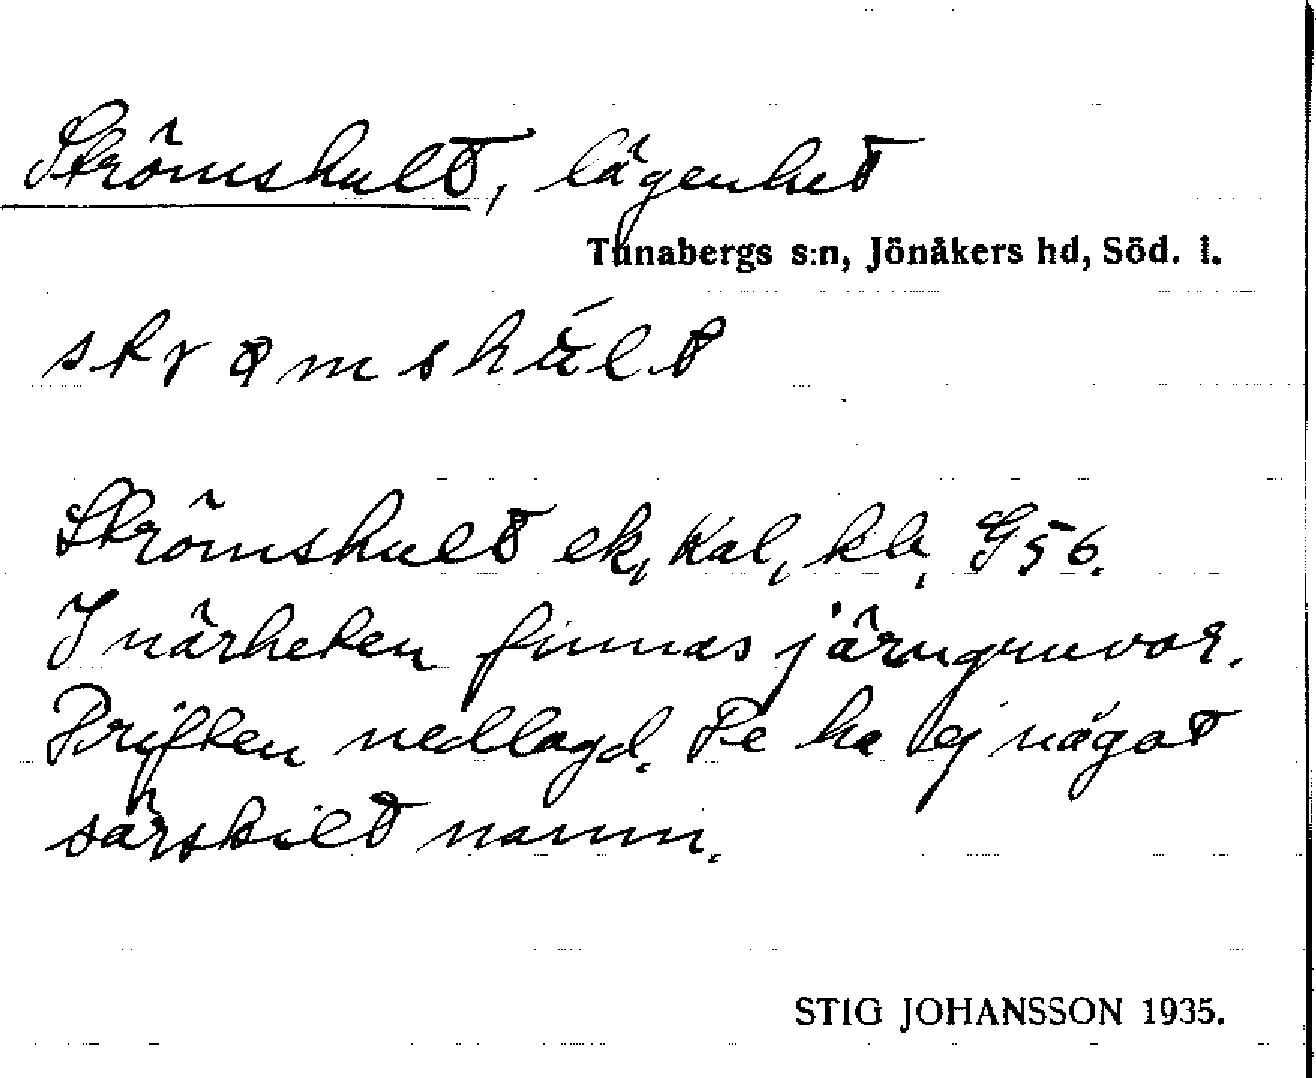 Strömshult, lägenhet
Tunabergs s:n, Jönåkers hd, Söd. l.
strømshúlt
Strömshult ek, Kal, kb, G56.
I närheten finnas järngruvor.
Driften nedlagd. De ha ej något
särskilt namn.
STIG JOHANSSON 1935.